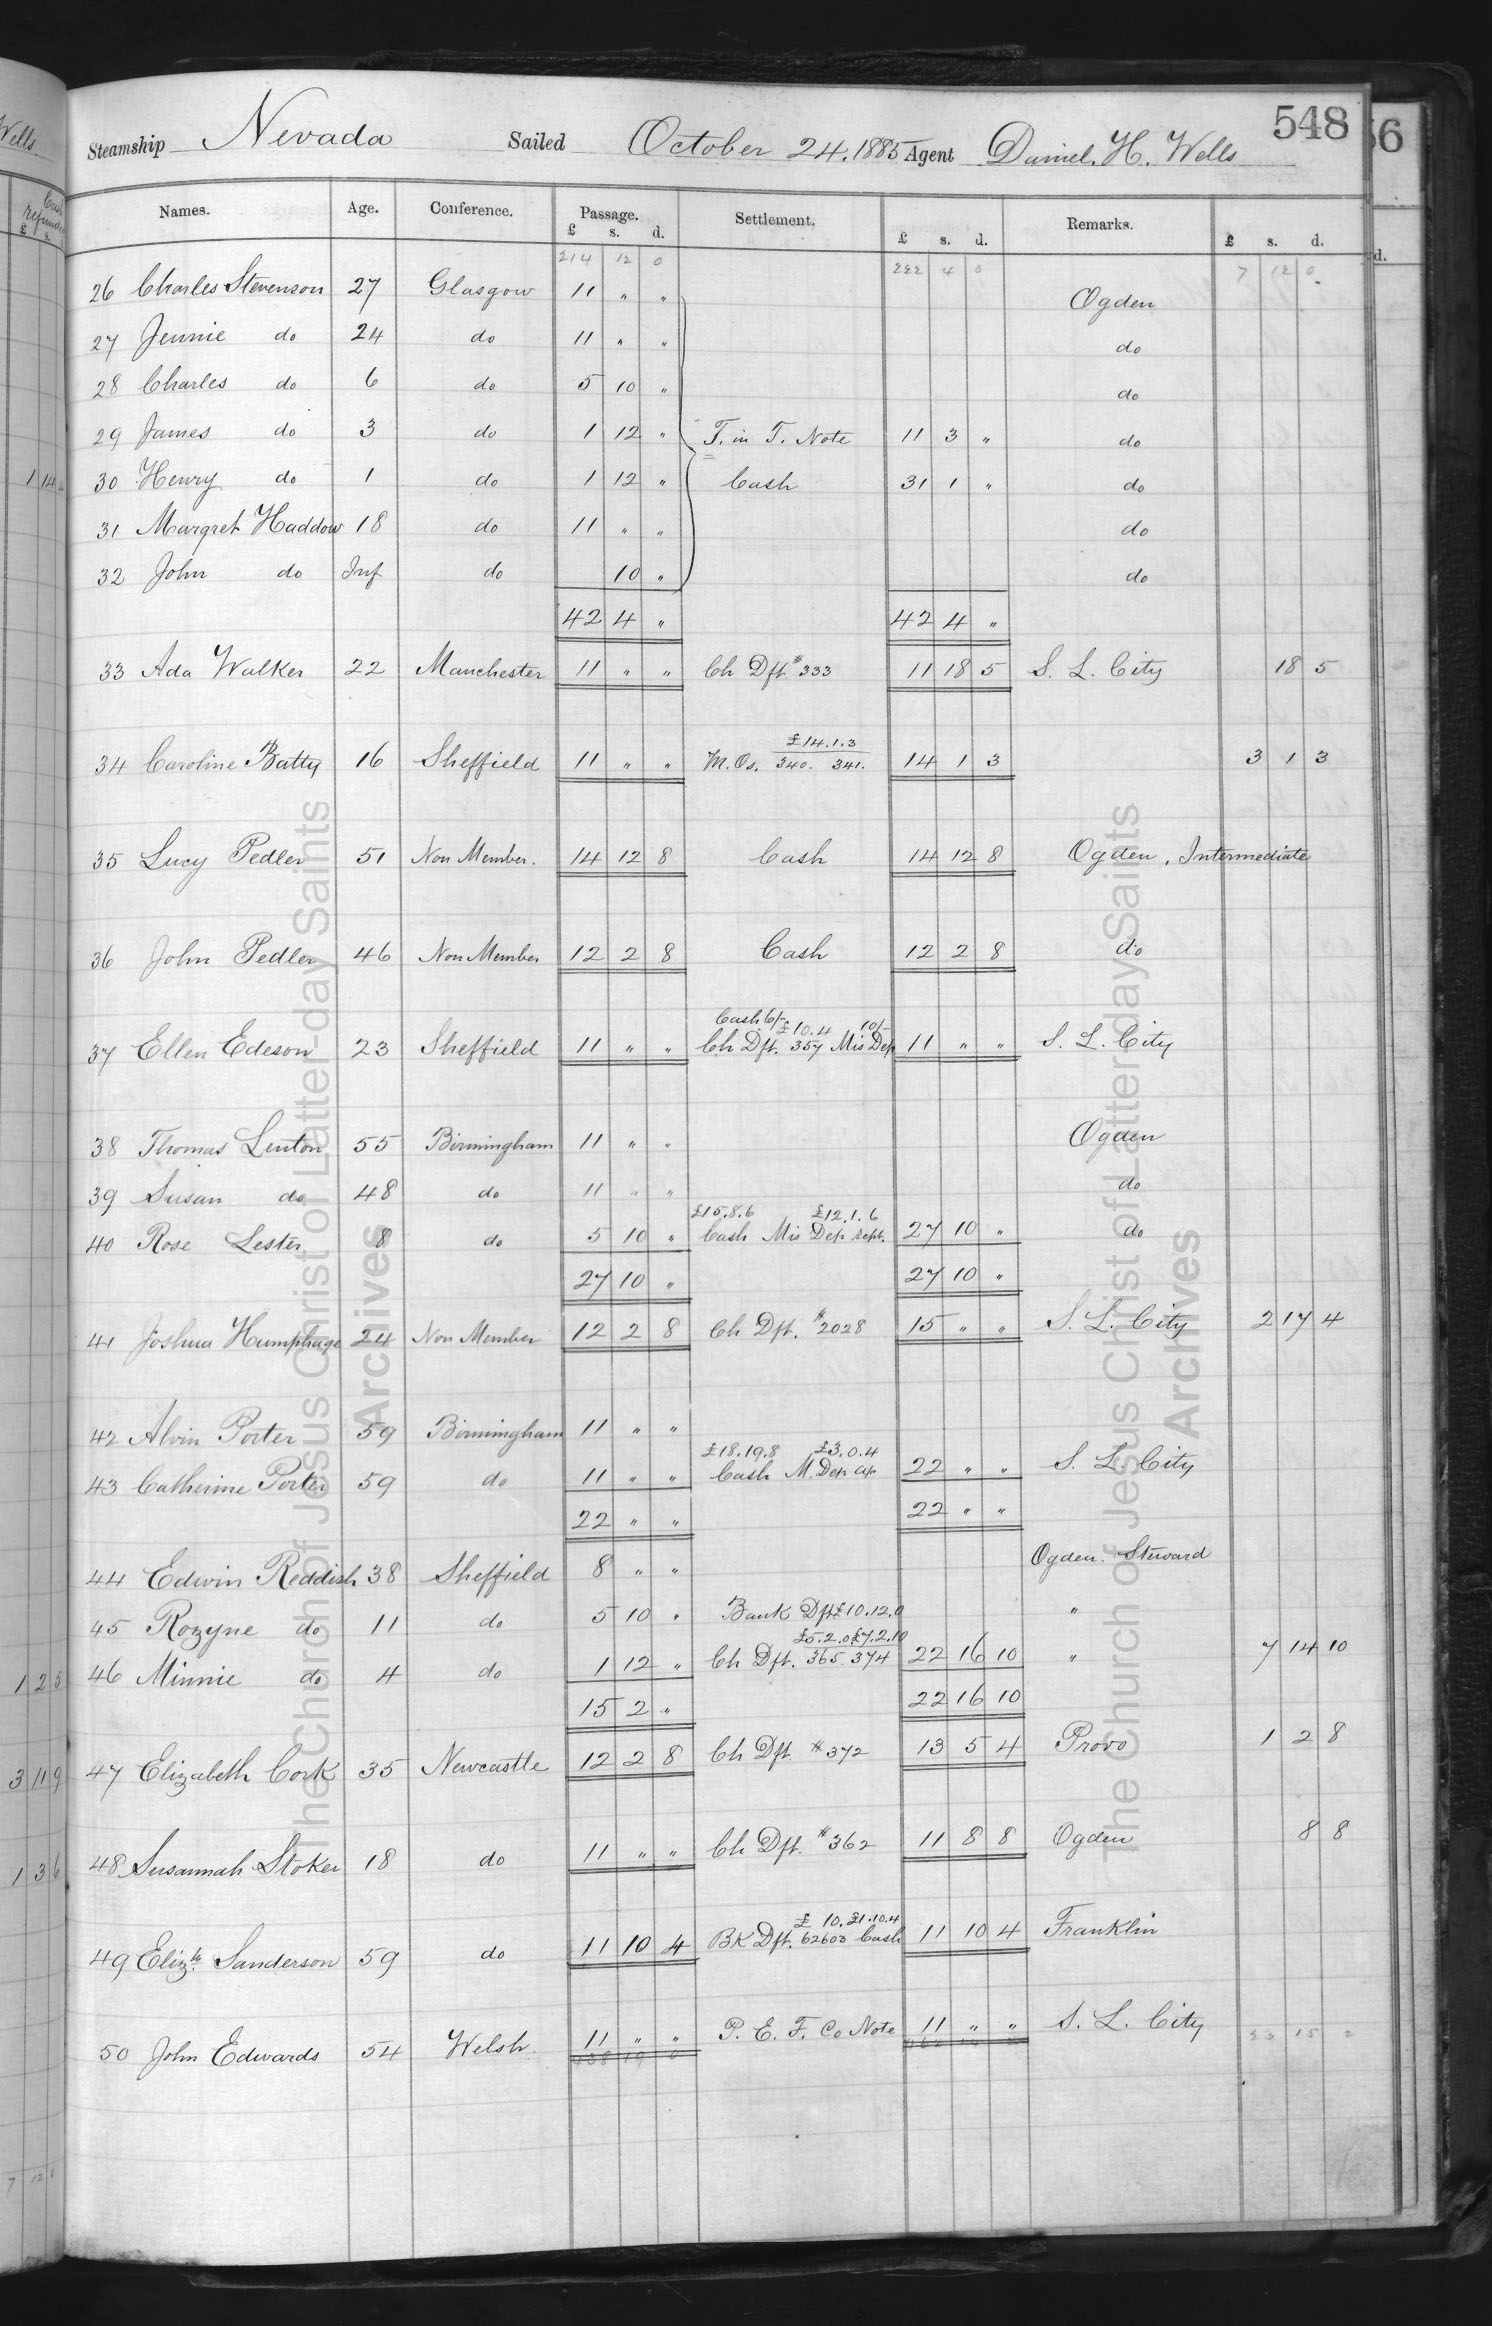 548
56
Steamship Nevada Sailed October 24, 1885 Agent Daniel. H. Wells
Wells
Cash
refunded
£ s.
Names. Age. Conference. Passage. Settlement. Remarks.
£ s. d. £ s. d. £ s. d.
d.
214 12 0 222 4 0 7 12 0
26 Charles Stevenson 27 Glasgow 11 " " Ogden
27 Jennie do 24 do 11 " " do
28 Charles do 6 do 5 10 " do
29 James do 3 do 1 12 " T. in T. Note 11 3 " do
30 Henry do 1 do 1 12 " Cash 31 1 " do
31 Margret Haddow 18 do 11 " " do
32 John do Inf do 10 " do
42 4 " 42 4 "
33 Ada Walker 22 Manchester 11 " " Ch Dft. #333 11 18 5 S. L. City 18 5
£14.1.3
34 Caroline Batty 16 Sheffield 11 " " M.Os. 340. 341. 14 1 3 3 1 3
35 Lucy Pedler 51 Non Member. 14 12 8 Cash 14 12 8 Ogden, Intermediate
36 John Pedler 46 Non Member 12 2 8 Cash 12 2 8 do
Cash 6/- £10.4 10/-
37 Ellen Edeson 23 Sheffield 11 " " Ch Dft. 357 Mis Dep 11 " " S. L. City
38 Thomas Linton 55 Birmingham 11 " " Ogden
39 Susan do 48 do 11 " " do
£15.8.6 £12.1.6
40 Rose Lester 8 do 5 10 " Cash Mis Dep rept. 27 10 " do
27 10 " 27 10 "
41 Joshua Humphage 24 Non Member 12 2 8 Ch Dft. #2028 15 " " S. L. City 2 17 4
42 Alvin Porter 59 Birmingham 11 " "
£18.19.8 £3.0.4
43 Catherine Porter 59 do 11 " " Cash M. Dep 22 " " S. L. City
22 " " 22 " "
44 Edwin Reddish 38 Sheffield 8 " " Ogden. Steward
45 Rozyne do 11 do 5 10 " Bank Dft £10.12.0 "
£5.2.0 £7.2.10
46 Minnie do 4 do 1 12 " Ch Dft. 365 374 22 16 10 " 7 14 10
15 2 " 22 16 10
47 Elizabeth Cork 35 Newcastle 12 2 8 Ch Dft #372 13 5 4 Provo 1 2 8
48 Susannah Stoker 18 do 11 " " Ch Dft. #362 11 8 8 Ogden 8 8
£ 10. £1.10.4
49 Elizth Sanderson 59 do 11 10 4 BK Dft. 62603 Cash 11 10 4 Franklin
50 John Edwards 54 Welsh 11 " " P. E. F. Co Note 11 " " S. L. City
23 15 2
The Church of Jesus Christ of Latter-day Saints
Archives
The Church of Jesus Christ of Latter-day Saints
Archives